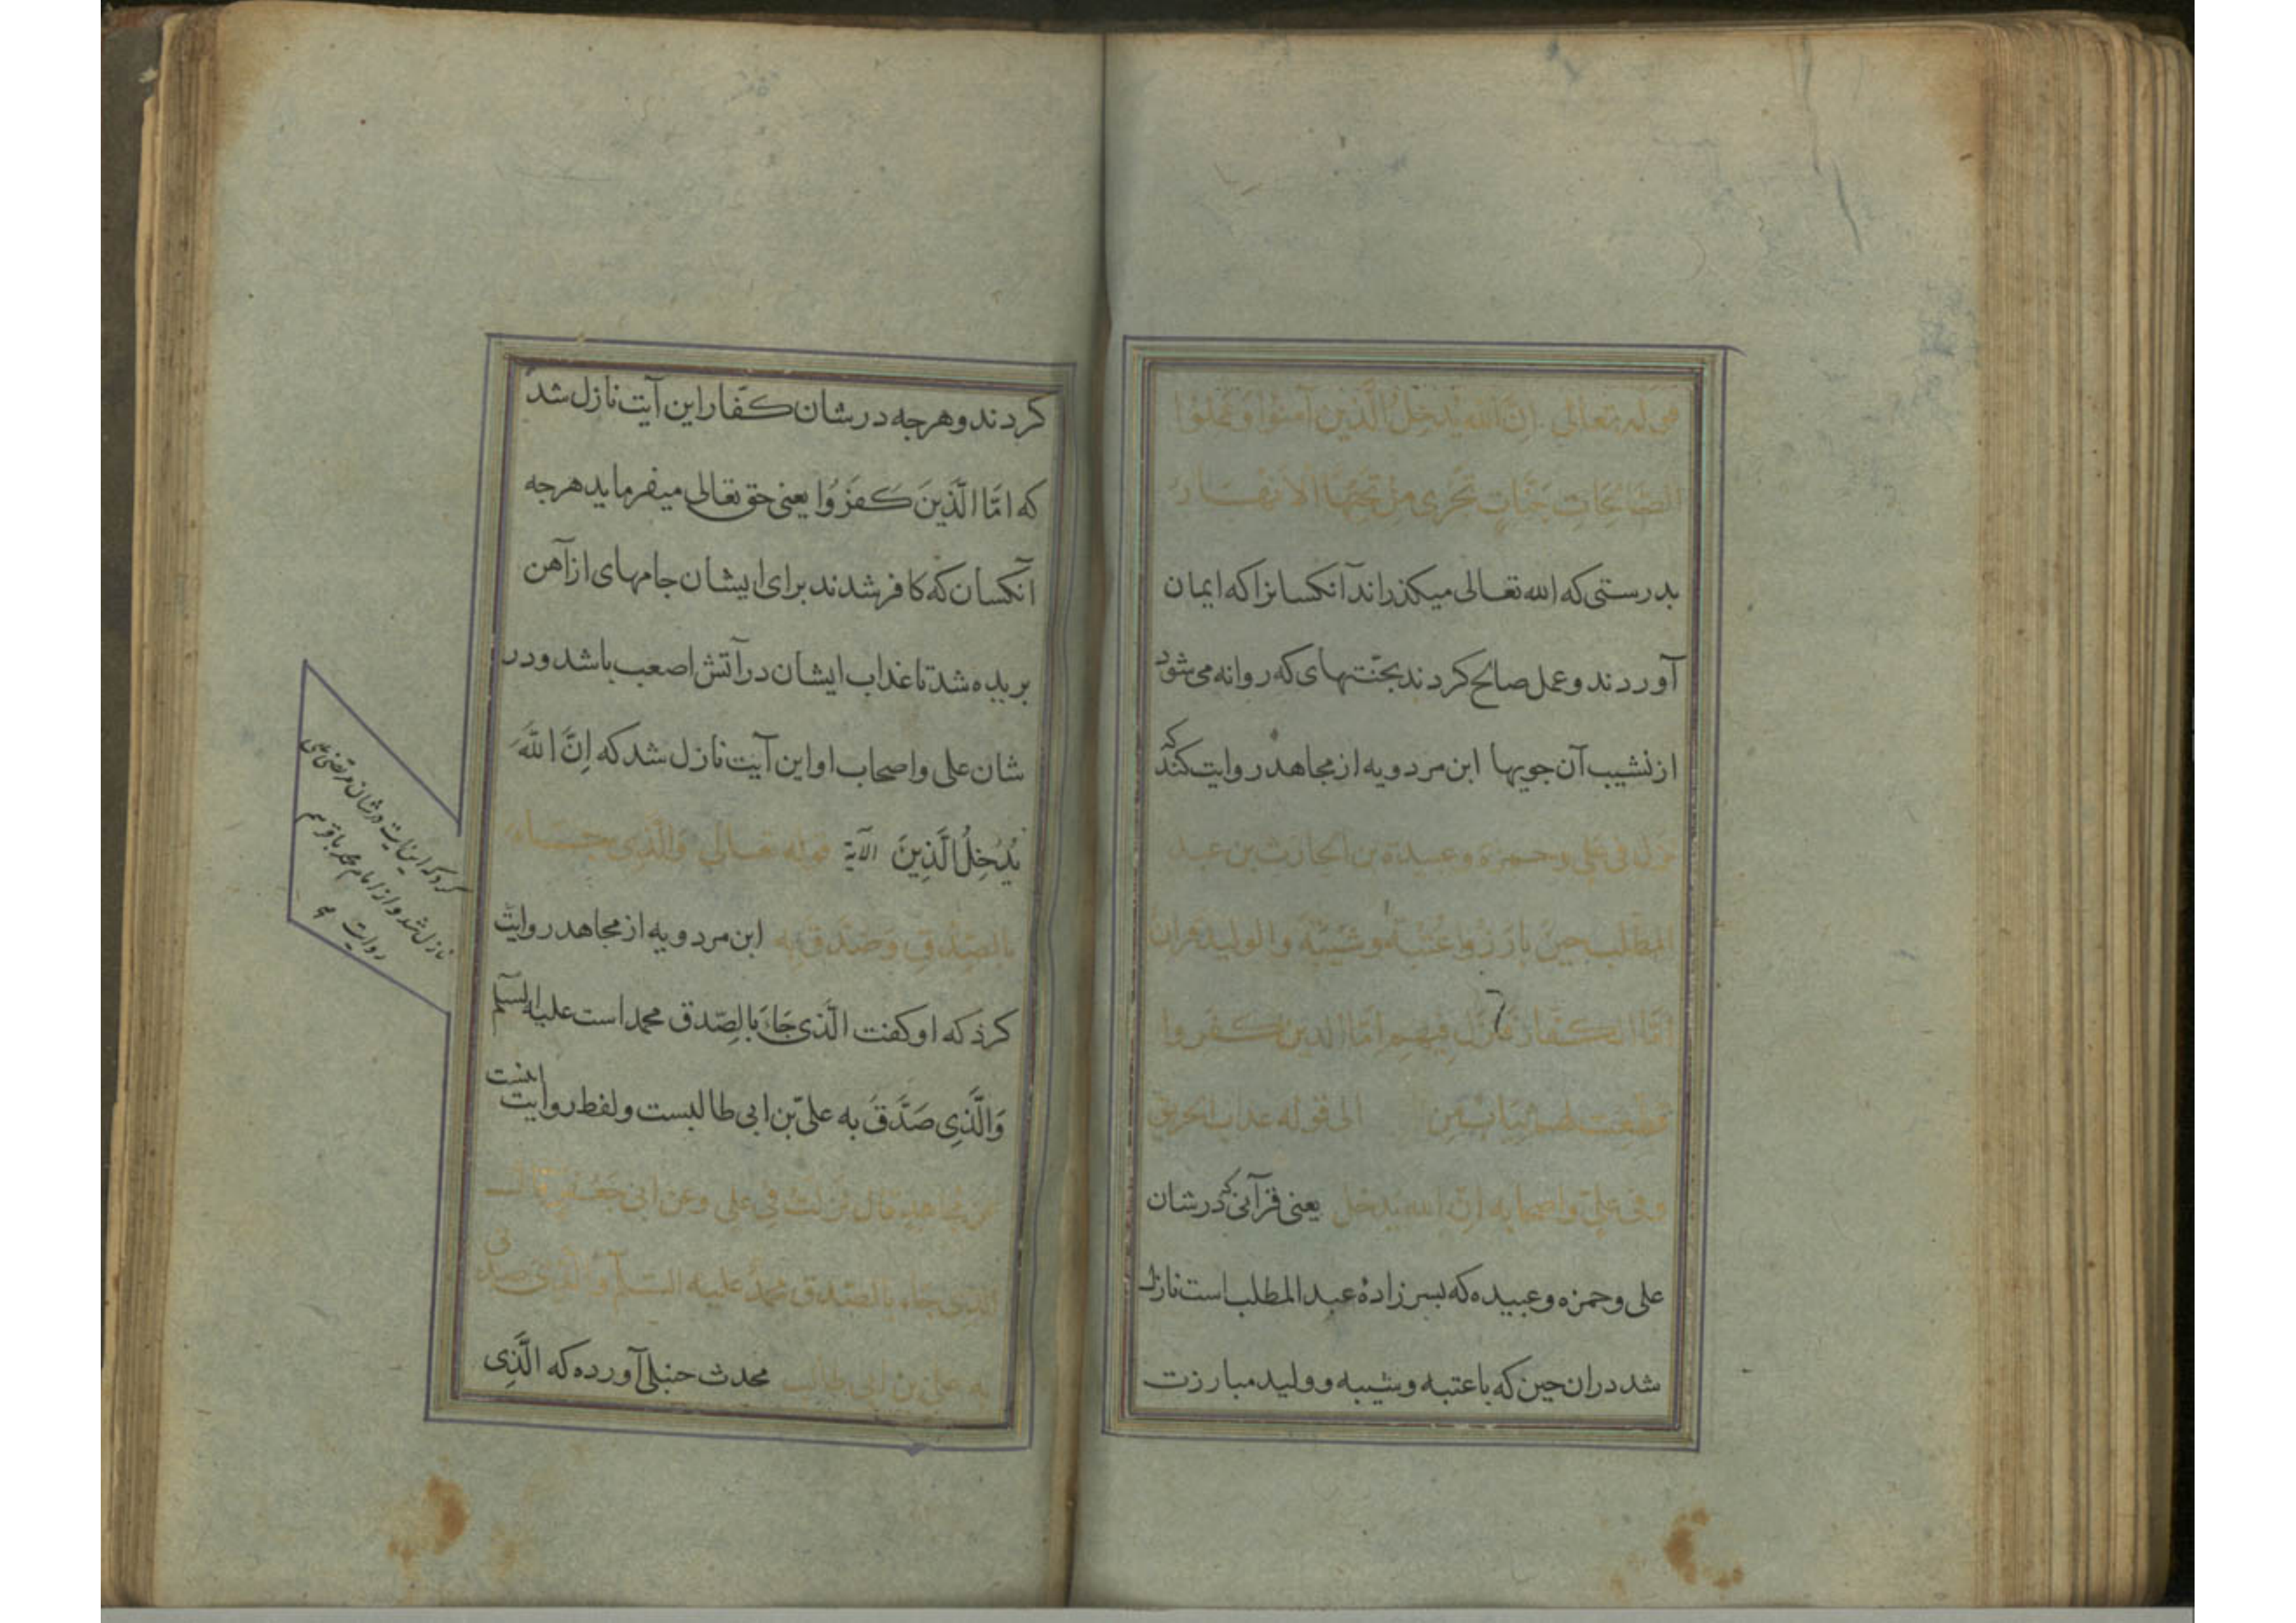 قوله تعالی إنَّ الله یُدخِلُ الَّذین آمنوا وعَمِلُوا
الصَّالِحَاتِ جَنَّاتٍ تَجْری مِنْ تَحْتِهَا الاَنْهَارُ
بدرستی که الله تعالی میکذراند آنکسانرا که ایمان
آوردند وعمل صالح کردند بجنّتهای که روانه می شود
از نشیب آن جویها ابن مردویه از مجاهد روایت کند که
نزل فی علی وحمزة وعبیدة بن الحارث بن عبد
المطّلب حین بارزوا عُتْبَة وشَیْبَة والولید قران
امّا الکفّار فنزل فیهم امّا الذین کفروا
قُطِّعت لهم ثیابٌ مِن الی قوله عذاب الحریق
وفی علیّ واصحابه انّ الله یدخل یعنی قرآنی که درشان
علی وحمزه وعبیده که بسرزادهٔ عبد المطلب است نازل
شد دران حین که باعتبه وشیبه وولید مبارزت
کردند وهرجه درشان کفّار این آیت نازل شد
که امّا الَّذینَ کَفَرُوا یعنی حق تعالی میفرماید هرجه
آنکسان که کافر شدند برای ایشان جامهای از آهن
بریده شد تا عذاب ایشان در آتش اصعب باشد ودر
شان علی واصحاب او این آیت نازل شد که إنَّ اللَّهَ
یُدْخِلُ الَّذِینَ الآیة قوله تعالی وَالَّذِی جَاءَ
بالصِّدْقِ وَصَدَّقَ بِه ابن مردویه از مجاهد روایت
کرد که او کفت الَّذی جَاءَ بالصِّدق محمد است علیه السلم
وَالَّذِی صَدَّقَ به علیّ بن ابی طالبست ولفظ روایت اینست
عن مُجاهدٍ قال نَزَلَتْ فِی علی وعن ابی جَعْفَرٍ قال
الّذی جَاء بالصّدق محمّدٌ علیه السلم والَّذی صدّق
به علیّ بن ابی طالب محدث حنبلی آورده که الَّذِی
کرد که این آیت درشان مرتضی علی
نازل شد و از امام محمد باقر هم
روایت